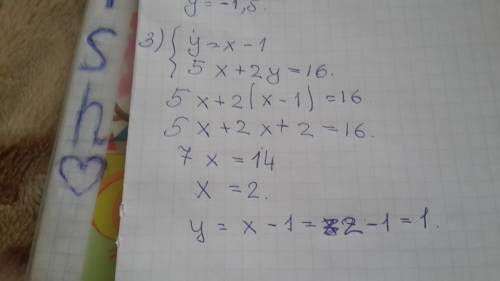 y=-1,5.
3) { y=x-1
5x+2y=16.
5x+2(x-1)=16
5x+2x+2=16.
7x=14
x=2.
y=x-1=2-1=1.